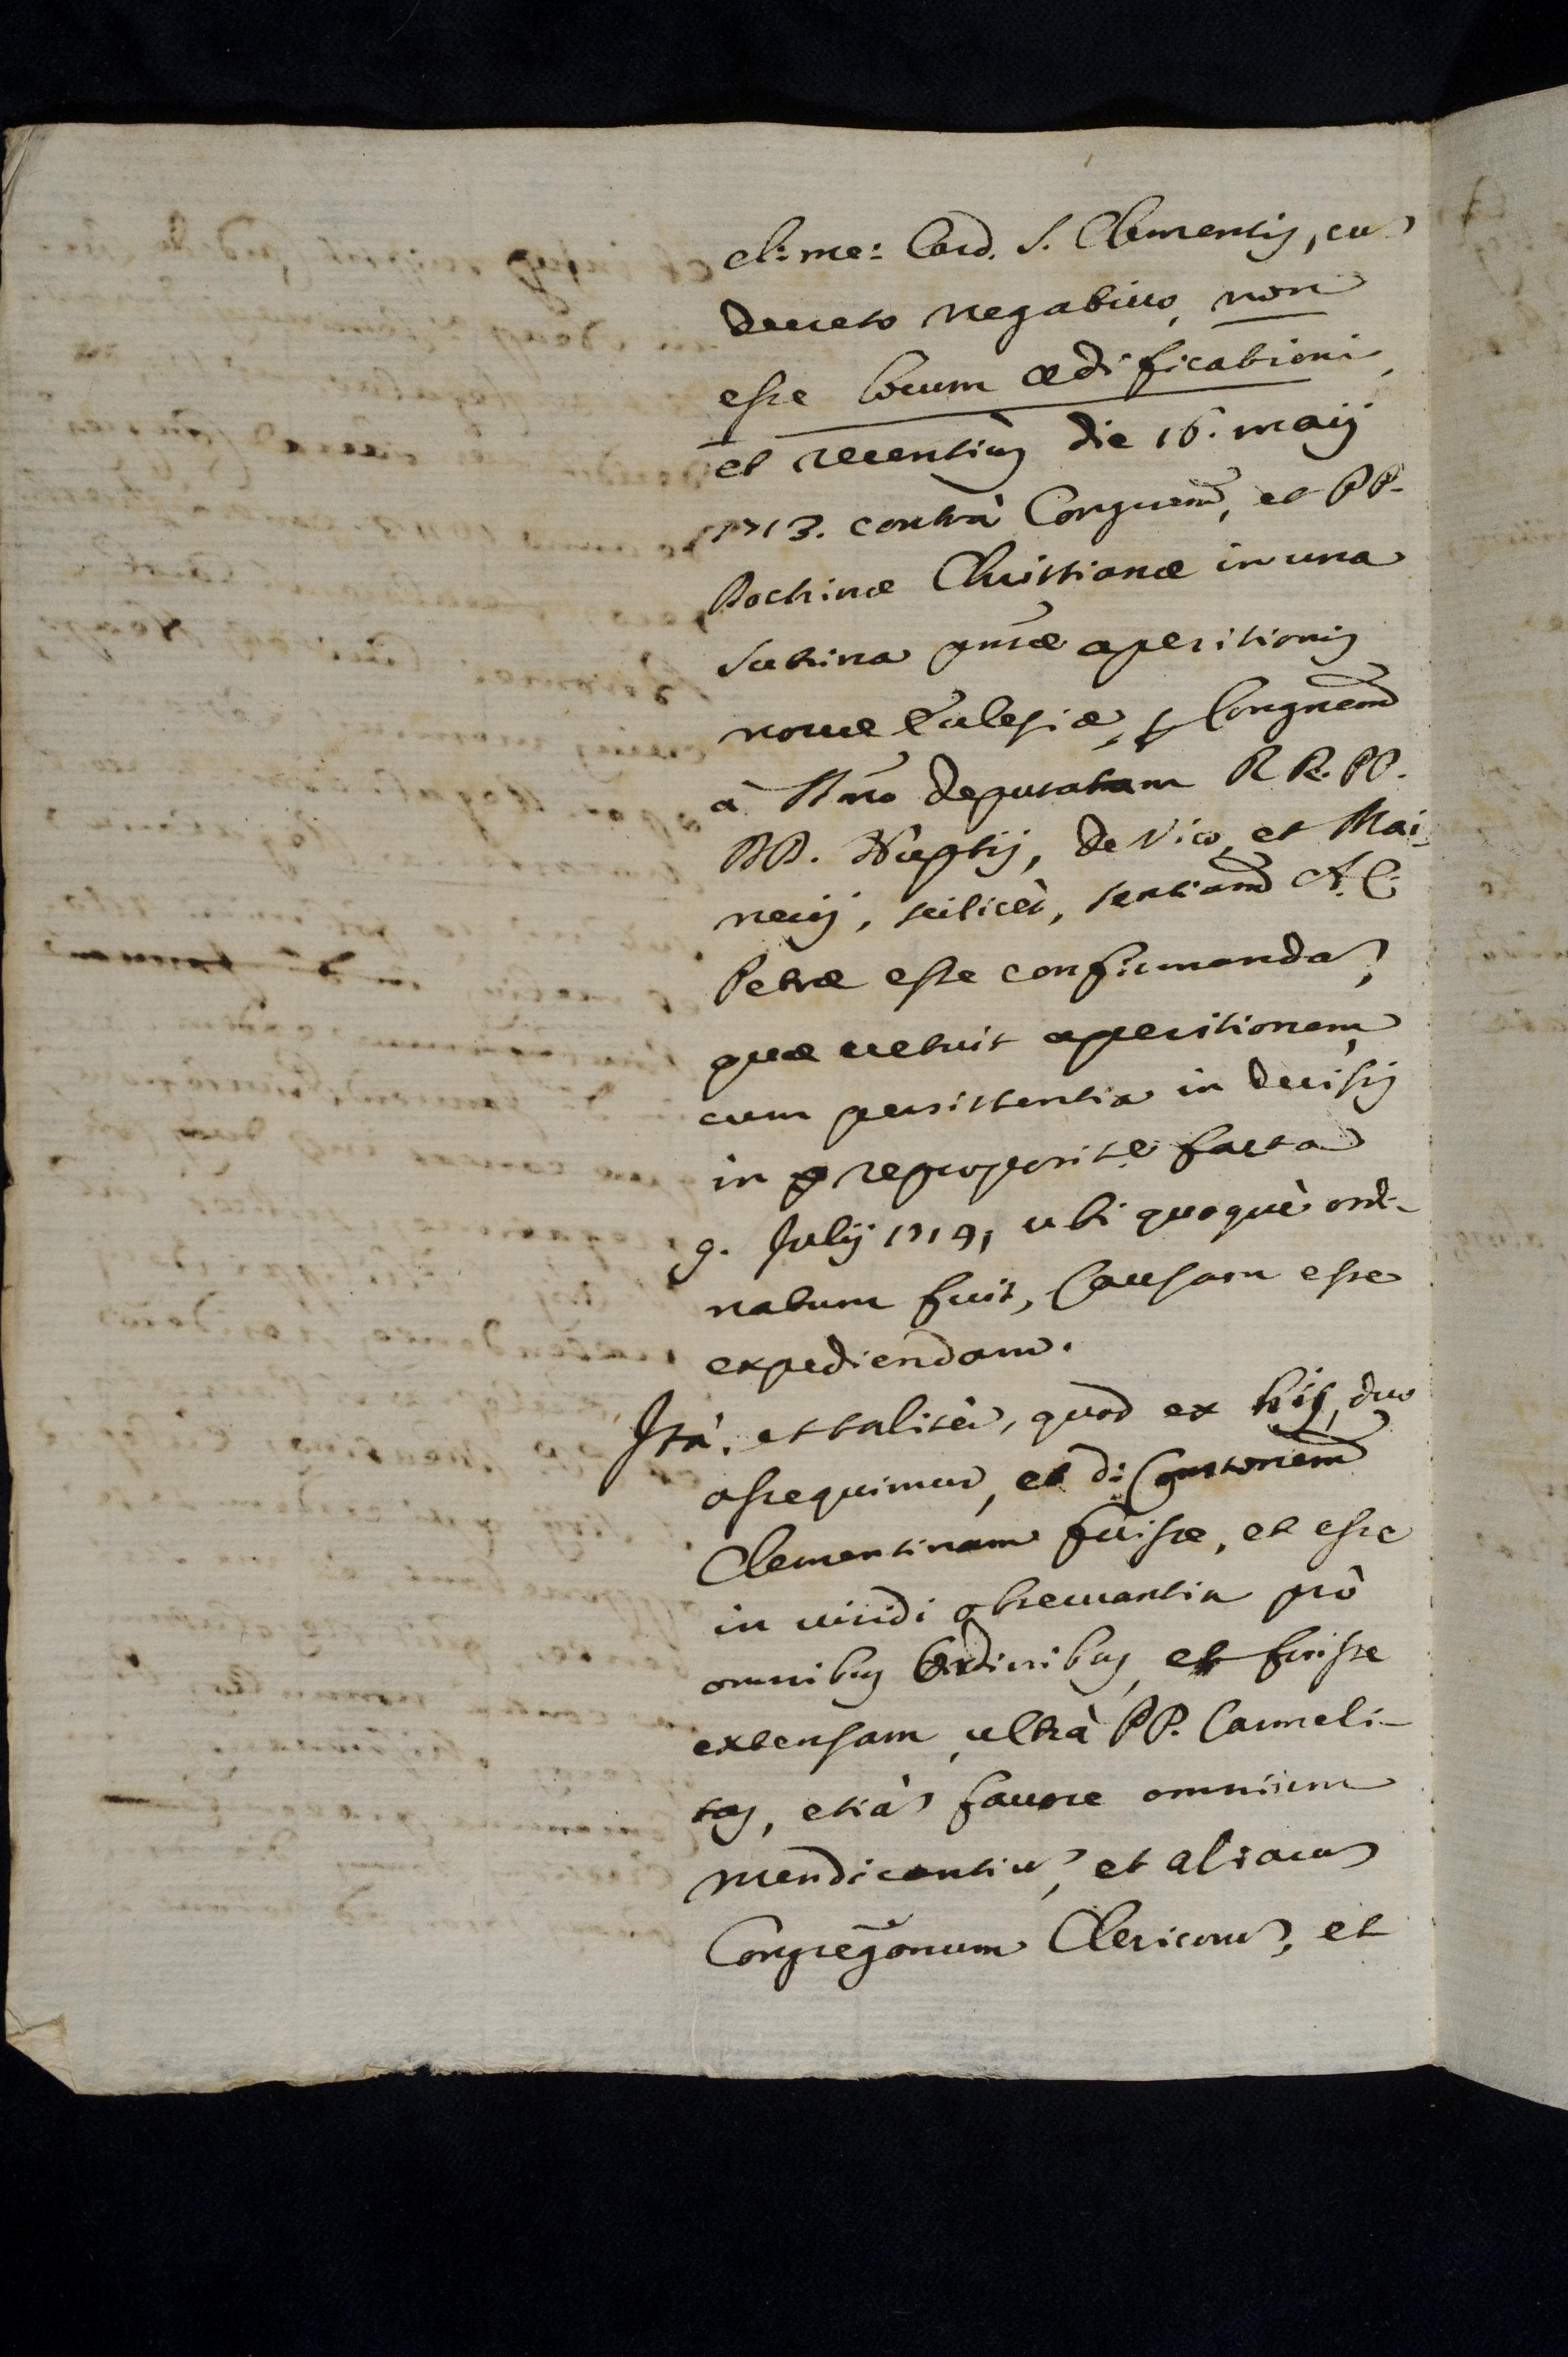 cl: me: Card. S. Clementis, cu
decreto negativo, non
esse locum ædificationi,
et recentius die 16. maij
1713. contrà Congnem, et PP.
Doctrinæ Christianæ in una
Sutrina pnsæ aperitionis
novæ Ecclesiæ, p Congnem
à Smo deputatam RR. PP.
DD. Nuptij, de Vico, et Mai-
nerij, scilicèt, sentiam A. C.
Petræ esse confirmanda,
quæ vetuit aperitionem,
cum persistentia in decisis
in reproposite facta
9. Julij 1714, ubi quoquè ordi-
natum fuit, Causam esse
expediendam.
Ità, et talitèr, quod ex his, duo
assequimur, et di: Constonem
Clementinam fuisse, et esse
in viridi observantia prò
omnibus Ordinibus, et fuisse
extensam, ultrà PP. Carmeli-
tas, etià favore omnium
mendicantiu, et aliaru
Congregonum Clericoru, et